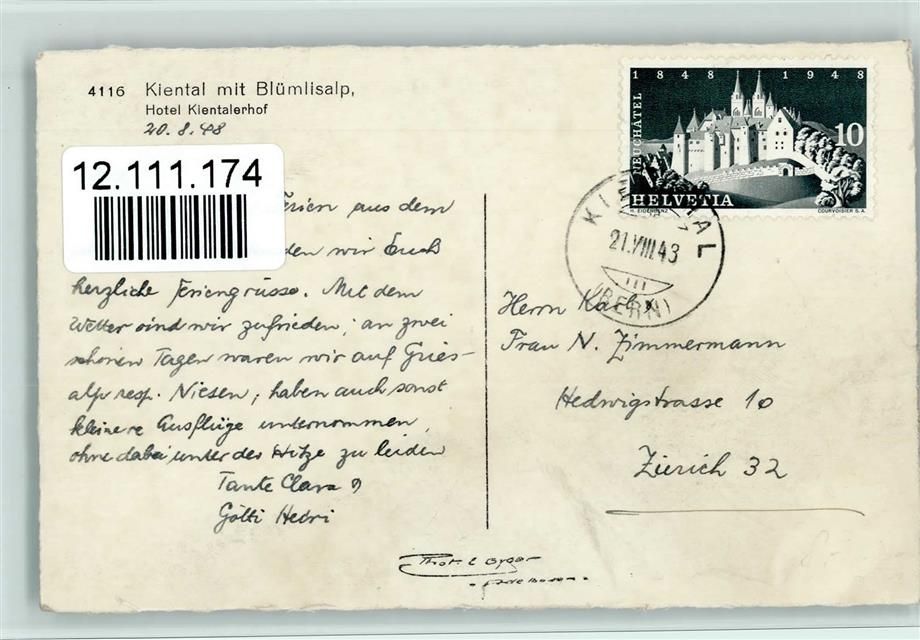 4116 Kiental mit Blümlisalp,
Hotel Kientalerhof
20.8.48
12.111.174
Ferien aus dem
den wir Euch
herzliche Feriengrüsse. Mit dem
Wetter sind wir zufrieden; an zwei
schönen Tagen waren wir auf Gries-
alp resp. Niesen, haben auch sonst
kleinere Ausflüge unternommen,
ohne dabei unter des Hitze zu leiden
Tante Clara &
Götti Hedri
1848 1948
NEUCHÂTEL
10
HELVETIA
COURVOISIER S.A.
KIENTAL
21.VIII.43
(BERN)
Herrn Karl &
Frau N. Zimmermann
Hedwigstrasse 10
Zürich 32
Phot. E Gyger